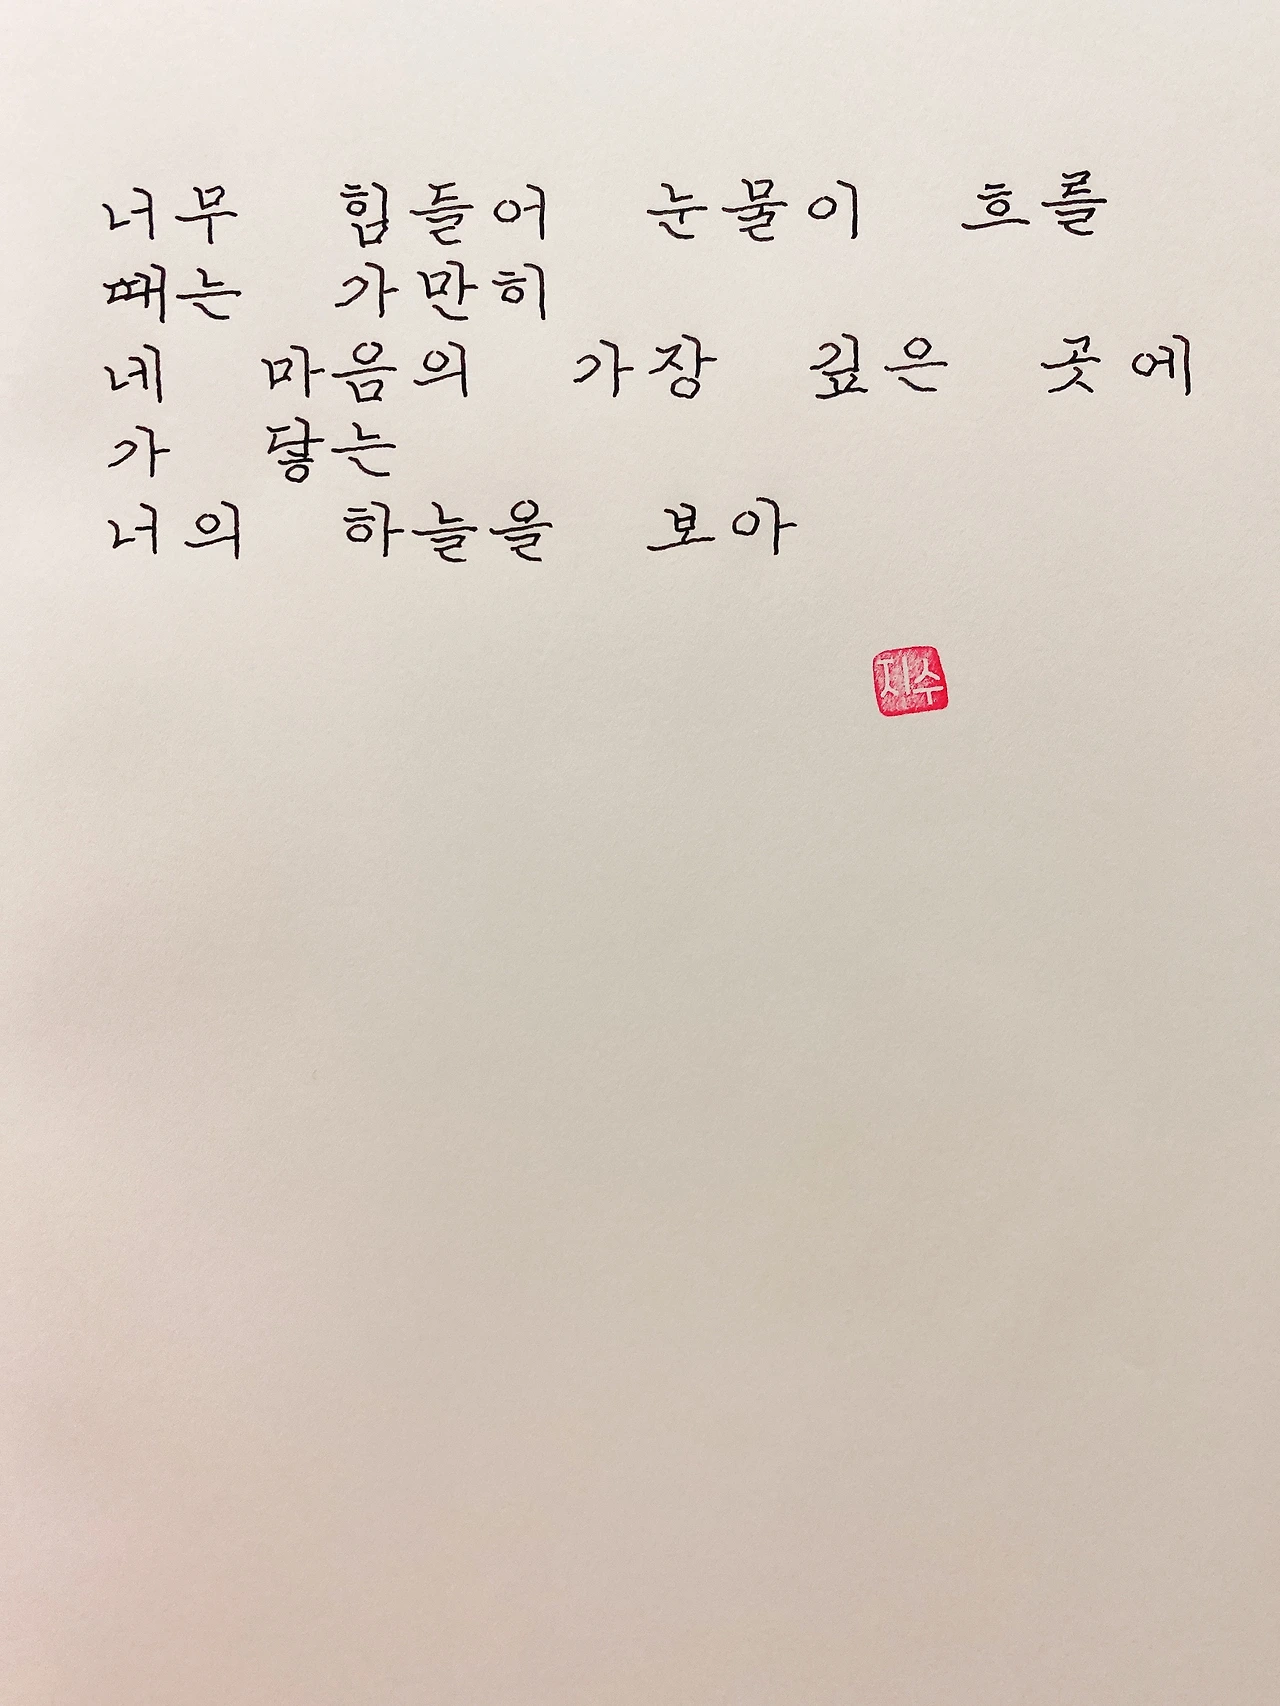 너무 힘들어 눈물이 흐를
때는 가만히
네 마음의 가장 깊은 곳에
가 닿는
너의 하늘을 보아
지수